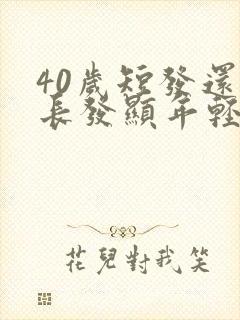 40歲短發還
長發顯年輕
花兒對我笑